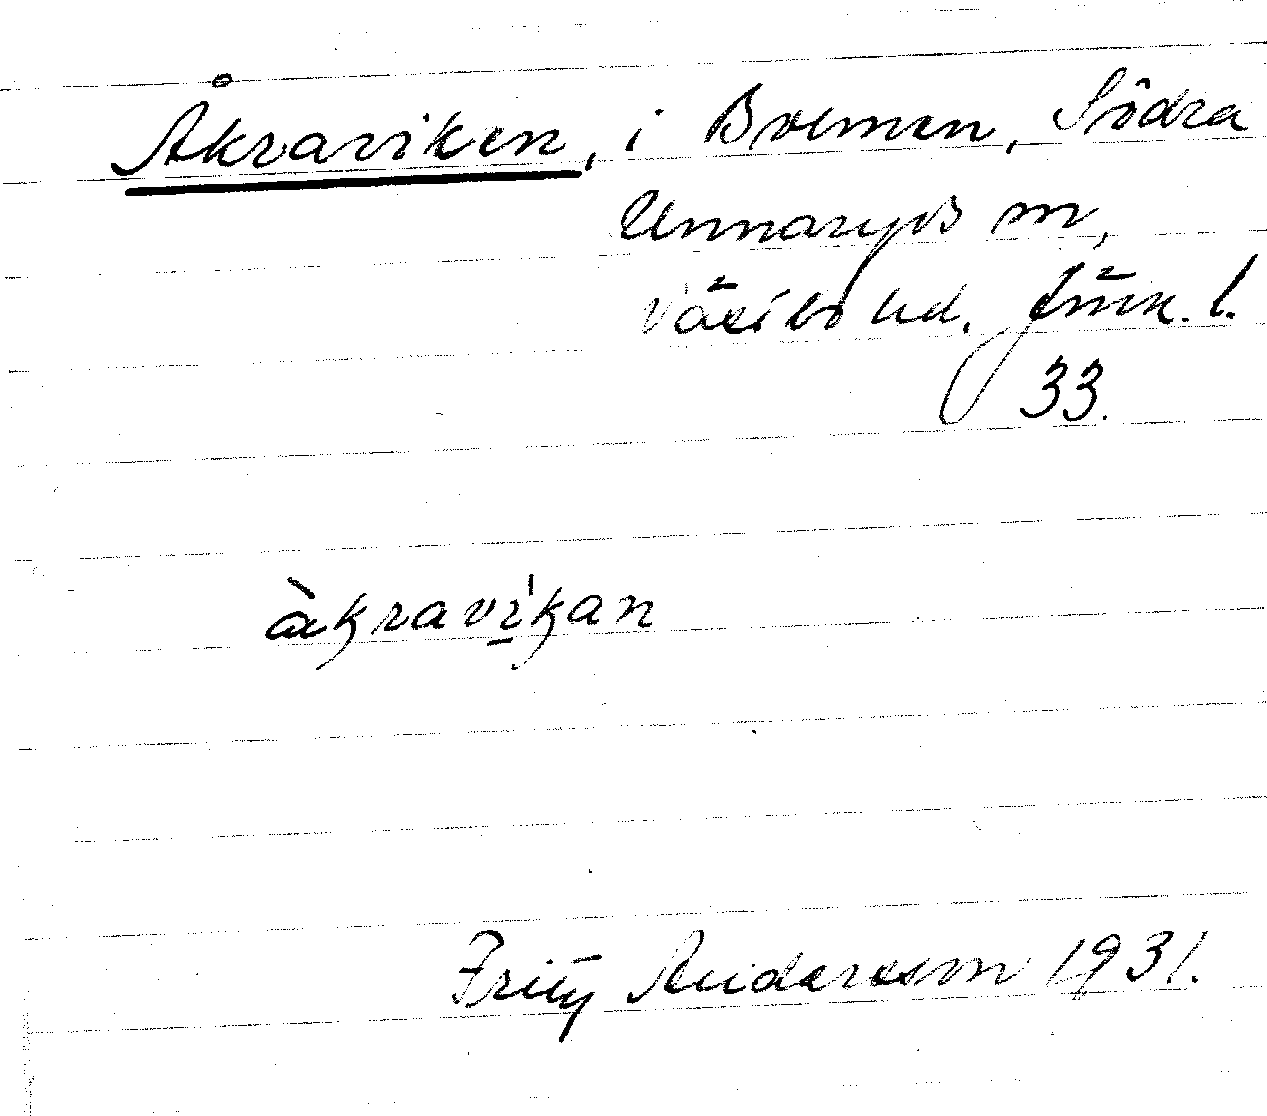 Åkraviken, i Bolmen, Södra
Unnaryds sn,
Västbo hd. Jönk. l.
33.
àkravi̱'kan
Fritz Andersson 1931.